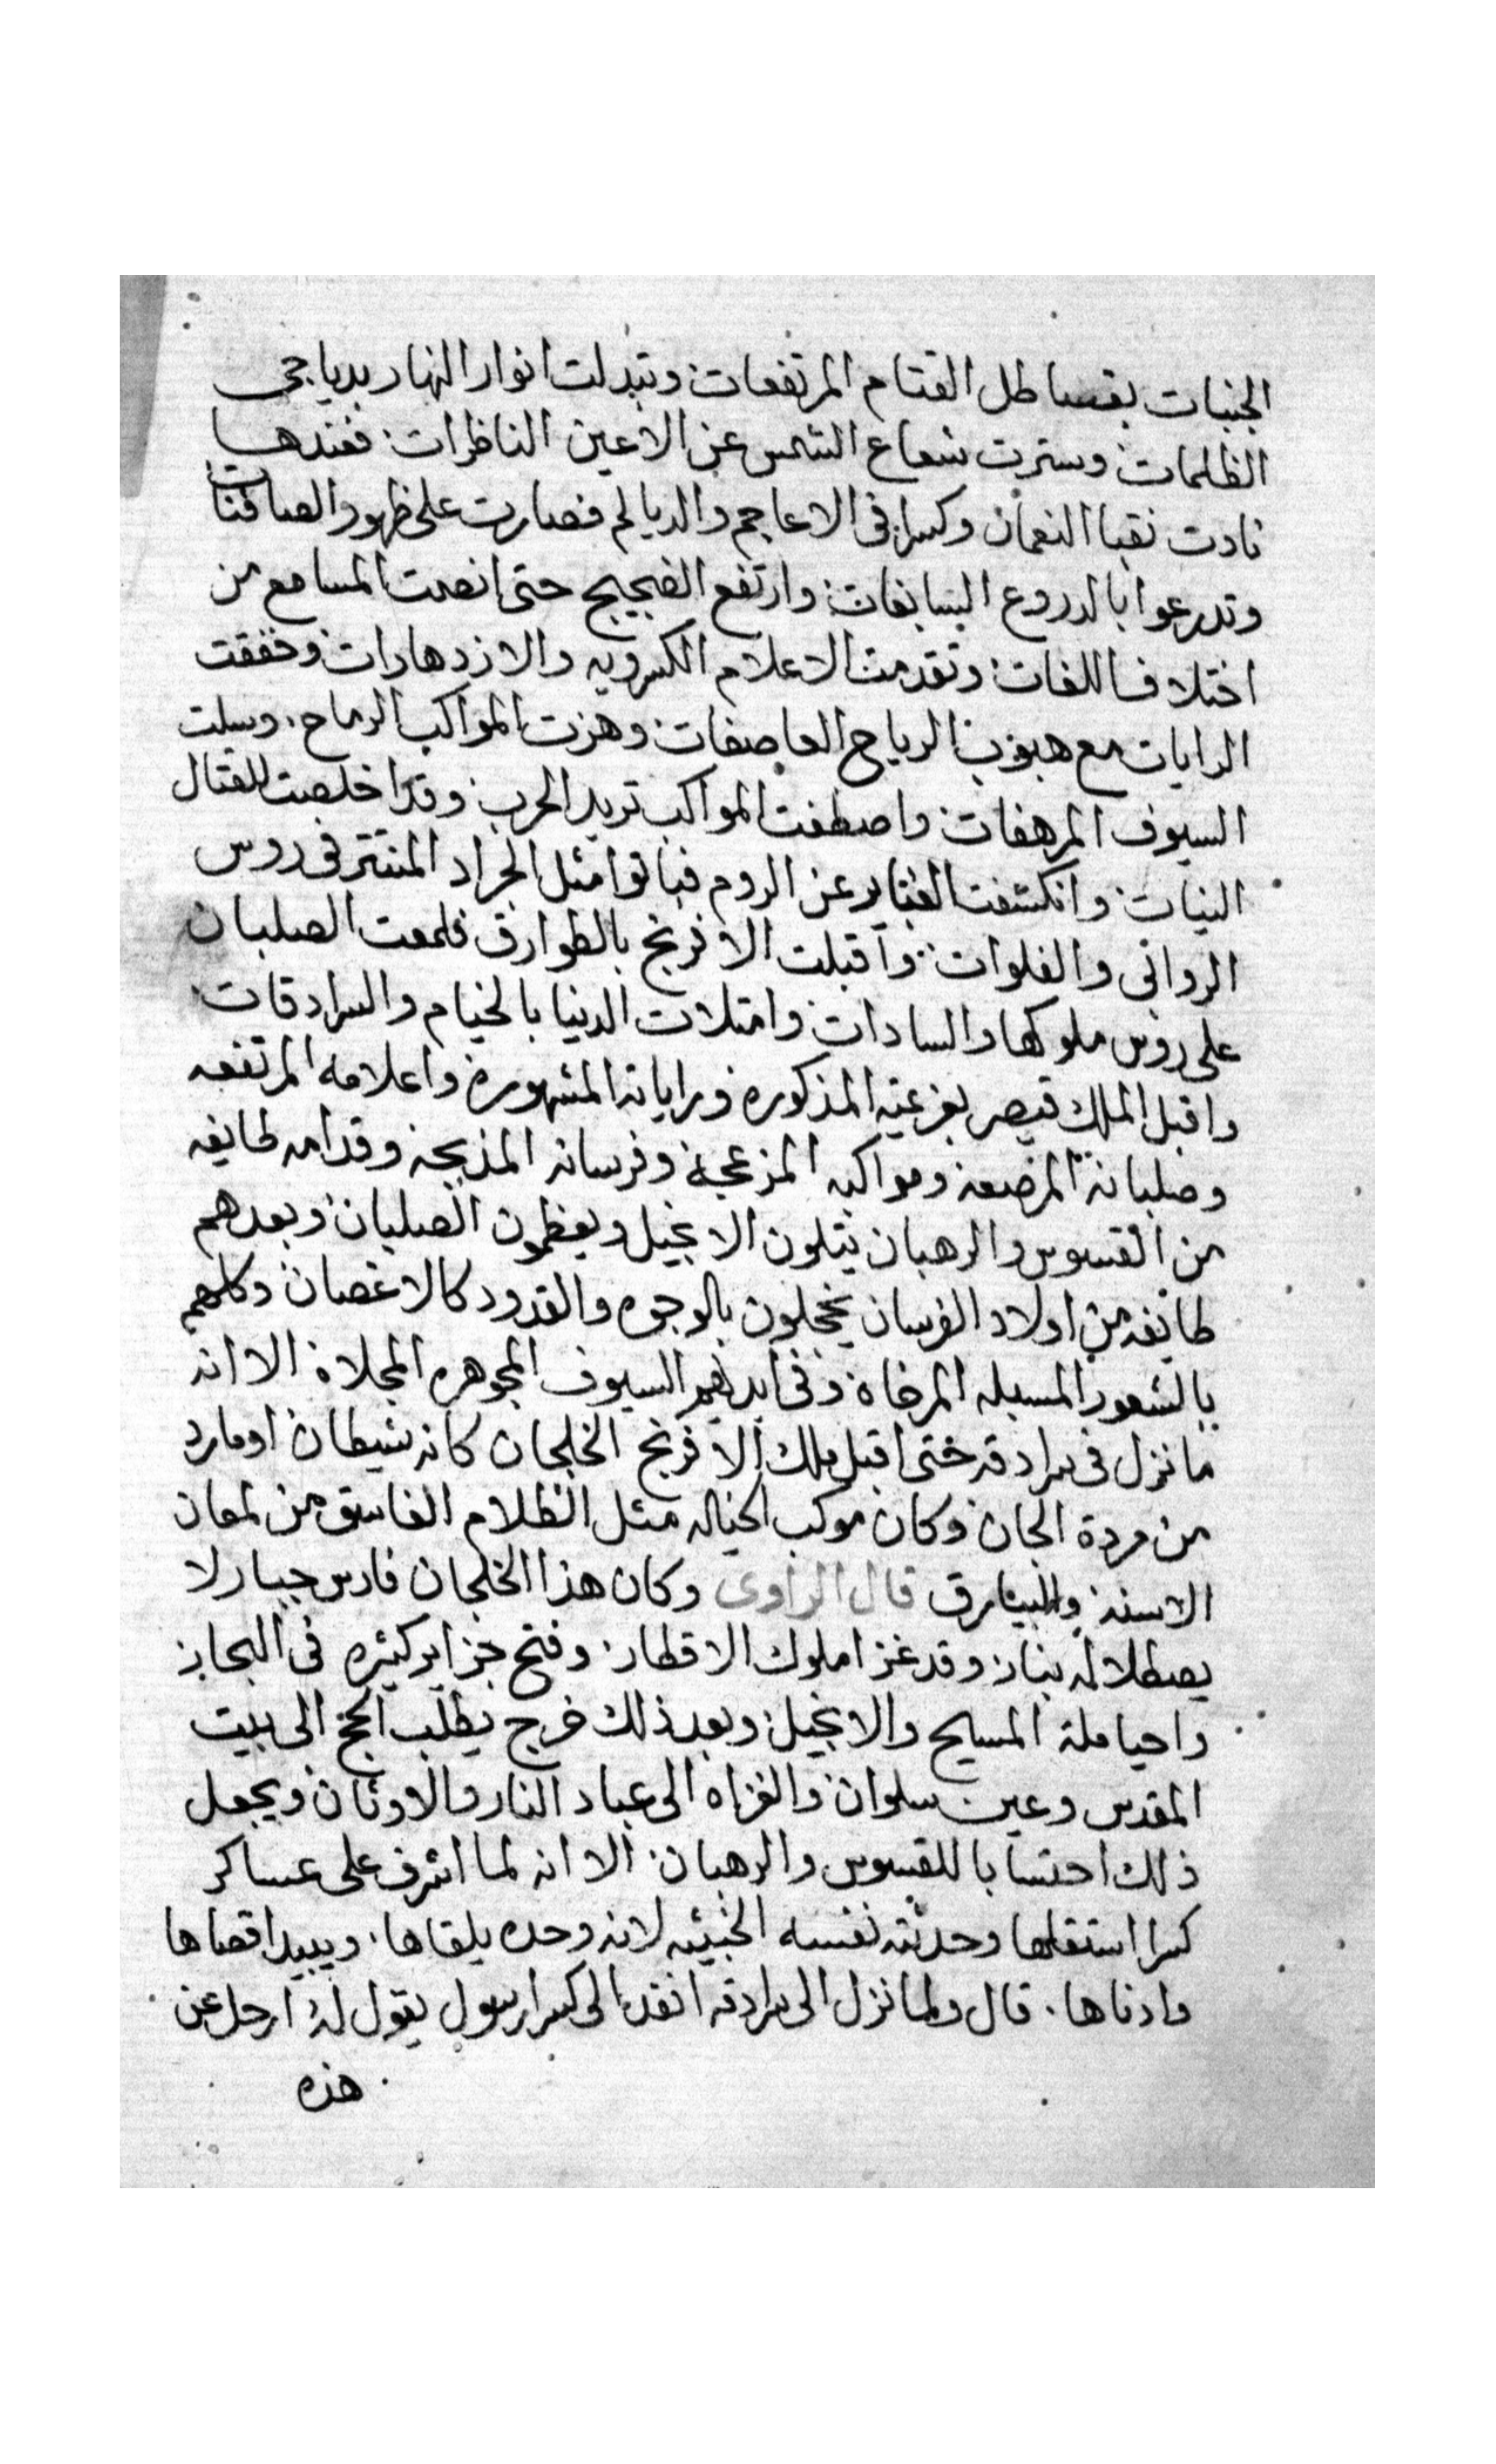 الجنبات بقساطل القتام المرتفعات وتبدلت انوار النهار بدياجى
الظلمات وسترت شعاع الشمس عن الاعين الناظرات فعندها
نادت نقبا النعمان وكسرا فى الاعاجم والديالم فصارت على ظهور الصافنات
وتدرعوا بالدروع السابغات وارتفع الضجيج حتى انصمت المسامع من
اختلاف اللغات وتقدمت الاعلام الكسرويه والازدهارات وخفقت
الرايات مع هبوب الرياح العاصفات وهزت المواكب الرماح وسلت
السيوف المرهفات واصطفت المواكب تريد الحرب وقد اخلصت للقتال
النيات وانكشفت الغباير عن الروم فبانوا مثل الجراد المنتثر فى روس
الروابى والفلوات واقبلت الافرنج بالطوارق فلمعت الصلبان
على روس ملوكها والسادات وامتلات الدنيا بالخيام والسرادقات
واقبل الملك قيصر بعزعيته المذكوره وراياته المشهورة واعلامه المرتفعه
وصلبانه المرضعه ومواكبه المزعجة وفرسانه المذبجه وقدامه طايفه
من القسوس والرهبان يتلون الانجيل ويعظمون الصلبان وبعدهم
طايفه من اولاد الفرسان يخجلون بالوجوه والقدود كالاغصان وكلهم
بالشعور المسبله المرخاة وفى ايديهم السيوف المجوهره المجلاة الا انه
ما نزل فى سرادقه حتى اقبل ملك الافرنج الخلجان كانه شيطان او مارد
من مردة الجان وكان موكب الخياله مثل الظلام الغاسق من لمعان
الاسنه والبيارق قال الراوى وكان هذا الخلجان فارس جبار لا
يصطلا له بنار وقد غزا ملوك الاقطار وفتح جزاير كثيره فى البحار
واحيا ملة المسيح والانجيل وبعد ذلك خرج يطلب الحج الى بيت
المقدس وعين سلوان والغزاه الى عباد النار والاوثان ويجعل
ذلك احتسابا للقسوس والرهبان الا انه لما اشرف على عساكر
كسرا استقلها وحدثته نفسه الخبيثه لانه وحده يلقاها ويبيد اقصاها
وادناها قال ولما نزل الى سرادقه انفد الى كسرا رسول يقول له ارحل عن
هذه